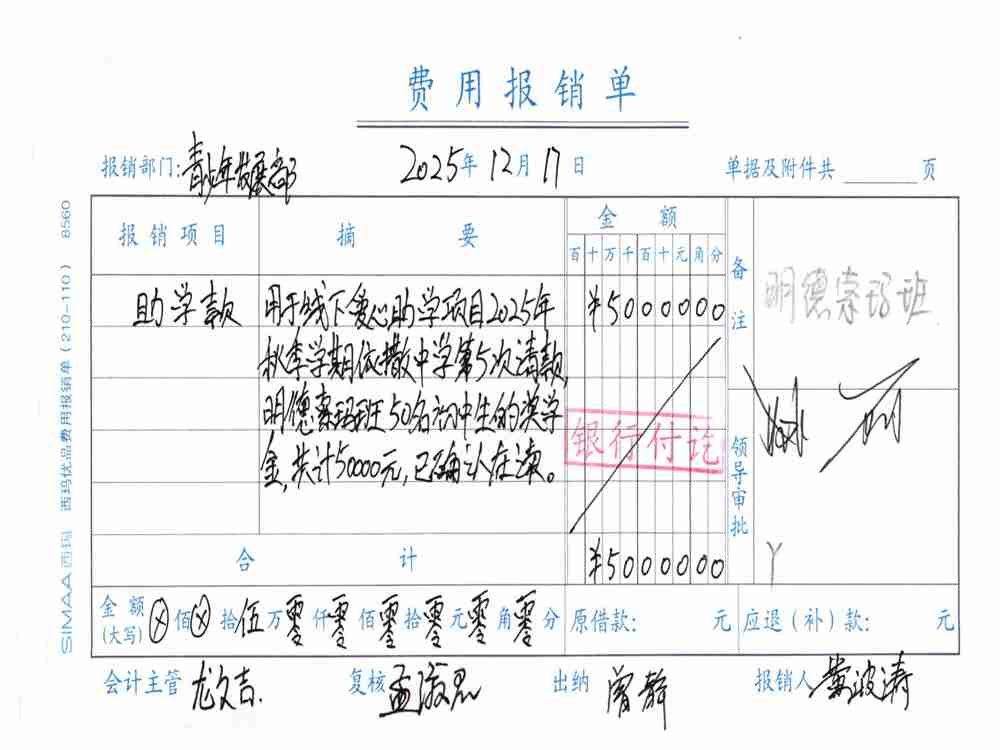 费用报销单
报销部门:青少年发展部 2025年12月17日 单据及附件共 页
报销项目 摘要 金额 备注 明德索玛班
百十万千百十元角分
助学款 用于线下爱心助学项目2025年 ¥5000000
秋季学期依撒中学第5次请款,
明德索玛班50名初中生的奖学
金,共计50000元,已确认在读。
银行付讫
领导审批
合计 ¥5000000
金额(大写) ⊗佰⊗拾伍万零仟零佰零拾零元零角零分 原借款: 元 应退(补)款: 元
会计主管 尤文吉. 复核 孟淑思 出纳 曾静 报销人 黄波涛
SIMAA 西玛 西玛优品费用报销单(210-110) 8560